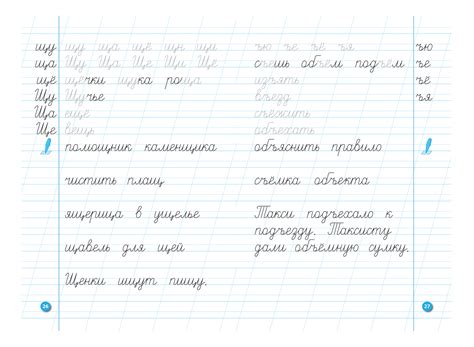 щу щу ща щё щи щи
ща Щу Ща Ще Щи Ще
щё щёчки щука роща
Щу Щучье
Ща ещё
Ще вещь
помощник каменщика
чистить плащ
ящерица в ущелье
щавель для щей
Щенки ищут пищу.
26
ъю ъе ъё ъя ъю
съешь объём подъём ъе
изъять ъё
въезд ъя
съёжить
объехать
объяснить правило
съёмка объекта
Такси подъехало к
подъезду. Таксисту
дали объёмную сумку.
27